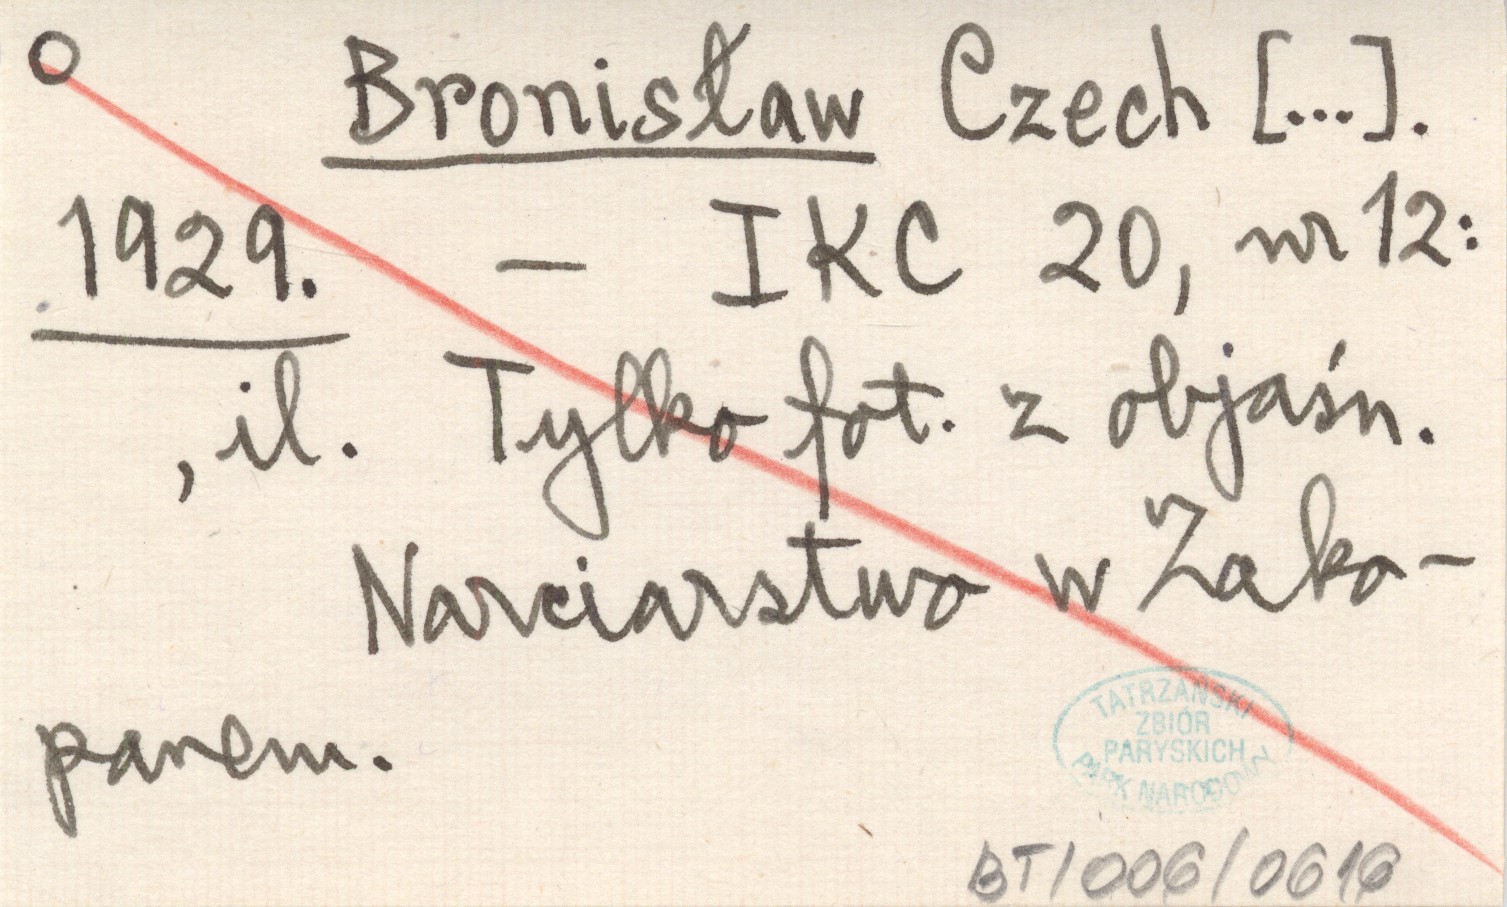 O Bronisław Czech [...].
1929. — IKC 20, nr 12:
, il. Tylko fot. z objaśn.
Narciarstwo w Zako-
panem.
TATRZAŃSKI
ZBIÓR
PARYSKICH
PARK NARODOWY
BT/006/0616